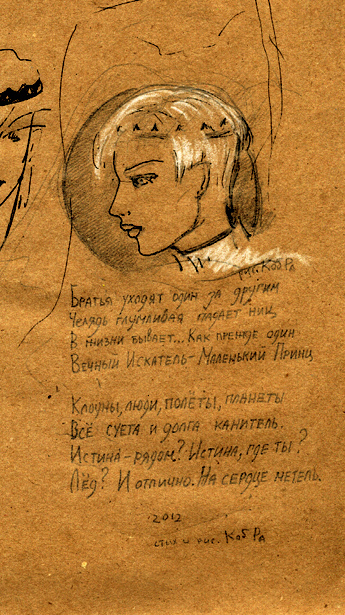 рис. Коб Ра
Братья уходят один за другим
Челядь глумливая падает ниц
В жизни бывает... Как прежде один
Вечный Искатель - Маленький Принц
Клоуны, люди, полёты, планеты
Всё суета и долга канитель.
Истина - рядом? Истина, где ты?
Лёд? И отлично. На сердце метель.
2012
стих и рис. Коб Ра